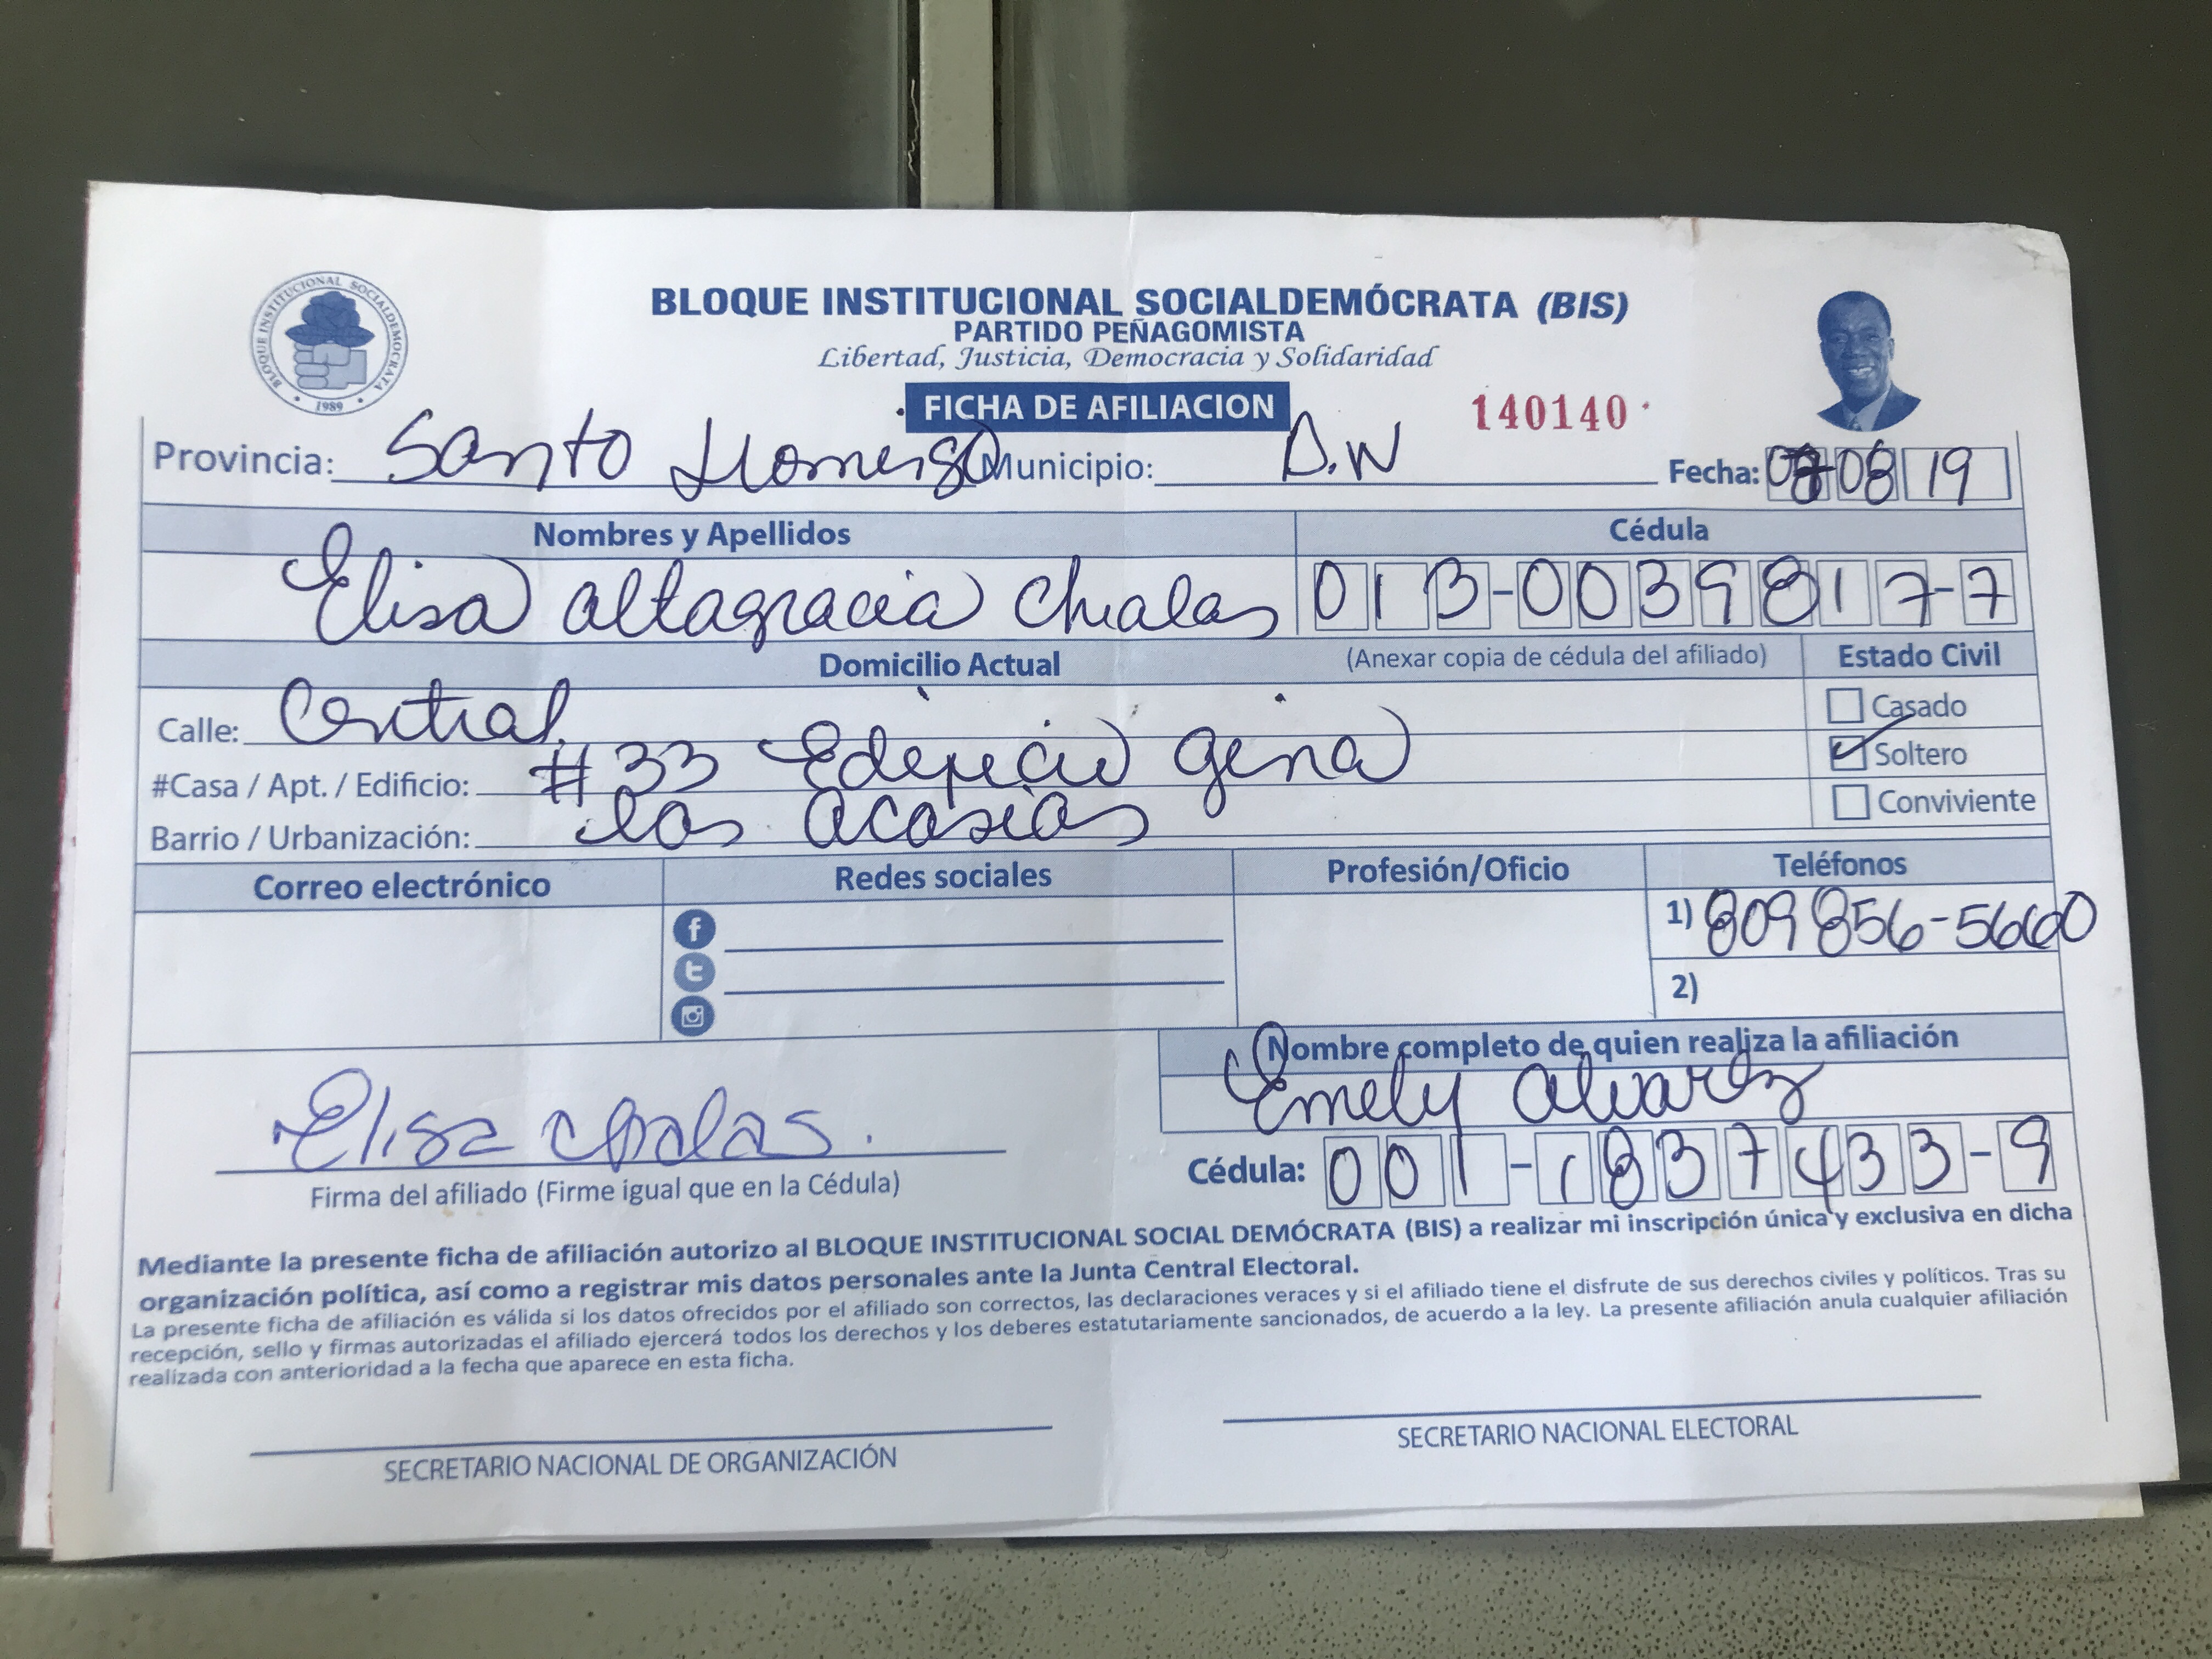 BLOQUE INSTITUCIONAL SOCIALDEMOCRATA
1989
BLOQUE INSTITUCIONAL SOCIALDEMÓCRATA (BIS)
PARTIDO PEÑAGOMISTA
Libertad, Justicia, Democracia y Solidaridad
FICHA DE AFILIACION
140140
Provincia: Santo Domingo Municipio: D.N Fecha: 08 19
Nombres y Apellidos Cédula
Elisa altagracia chalas 013-0039817-7
Domicilio Actual (Anexar copia de cédula del afiliado) Estado Civil
Calle: Central Casado
#Casa / Apt. / Edificio: #33 Edificio gina Soltero
Barrio / Urbanización: las acasias Conviviente
Correo electrónico Redes sociales Profesión/Oficio Teléfonos
1) 809 856-5660
2)
Nombre completo de quien realiza la afiliación
Emely alvarez
Elisa chalas.
Cédula: 001-1837433-9
Firma del afiliado (Firme igual que en la Cédula)
Mediante la presente ficha de afiliación autorizo al BLOQUE INSTITUCIONAL SOCIAL DEMÓCRATA (BIS) a realizar mi inscripción única y exclusiva en dicha
organización política, así como a registrar mis datos personales ante la Junta Central Electoral.
La presente ficha de afiliación es válida si los datos ofrecidos por el afiliado son correctos, las declaraciones veraces y si el afiliado tiene el disfrute de sus derechos civiles y políticos. Tras su
recepción, sello y firmas autorizadas el afiliado ejercerá todos los derechos y los deberes estatutariamente sancionados, de acuerdo a la ley. La presente afiliación anula cualquier afiliación
realizada con anterioridad a la fecha que aparece en esta ficha.
SECRETARIO NACIONAL DE ORGANIZACIÓN
SECRETARIO NACIONAL ELECTORAL